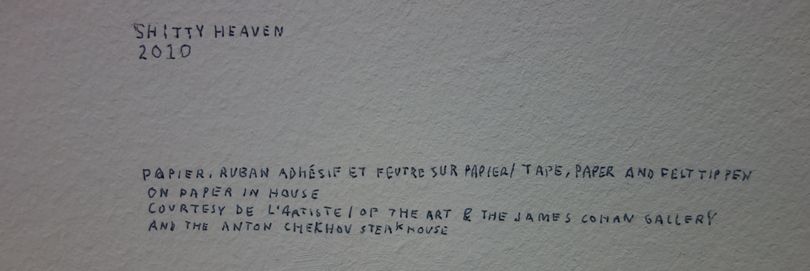 SHITTY HEAVEN
2010
PAPIER, RUBAN ADHÉSIF ET FEUTRE SUR PAPIER/ TAPE, PAPER AND FELT TIP PEN
ON PAPER IN HOUSE
COURTESY DE L'ARTISTE / OF THE ART & THE JAMES COHAN GALLERY
AND THE ANTON CHEKHOV STEAKHOUSE